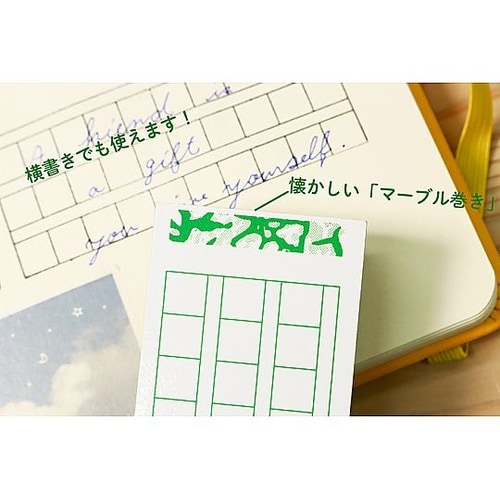 a friend is
横書きでも使えます！
a gift
you give yourself.
懐かしい「マーブル巻き」